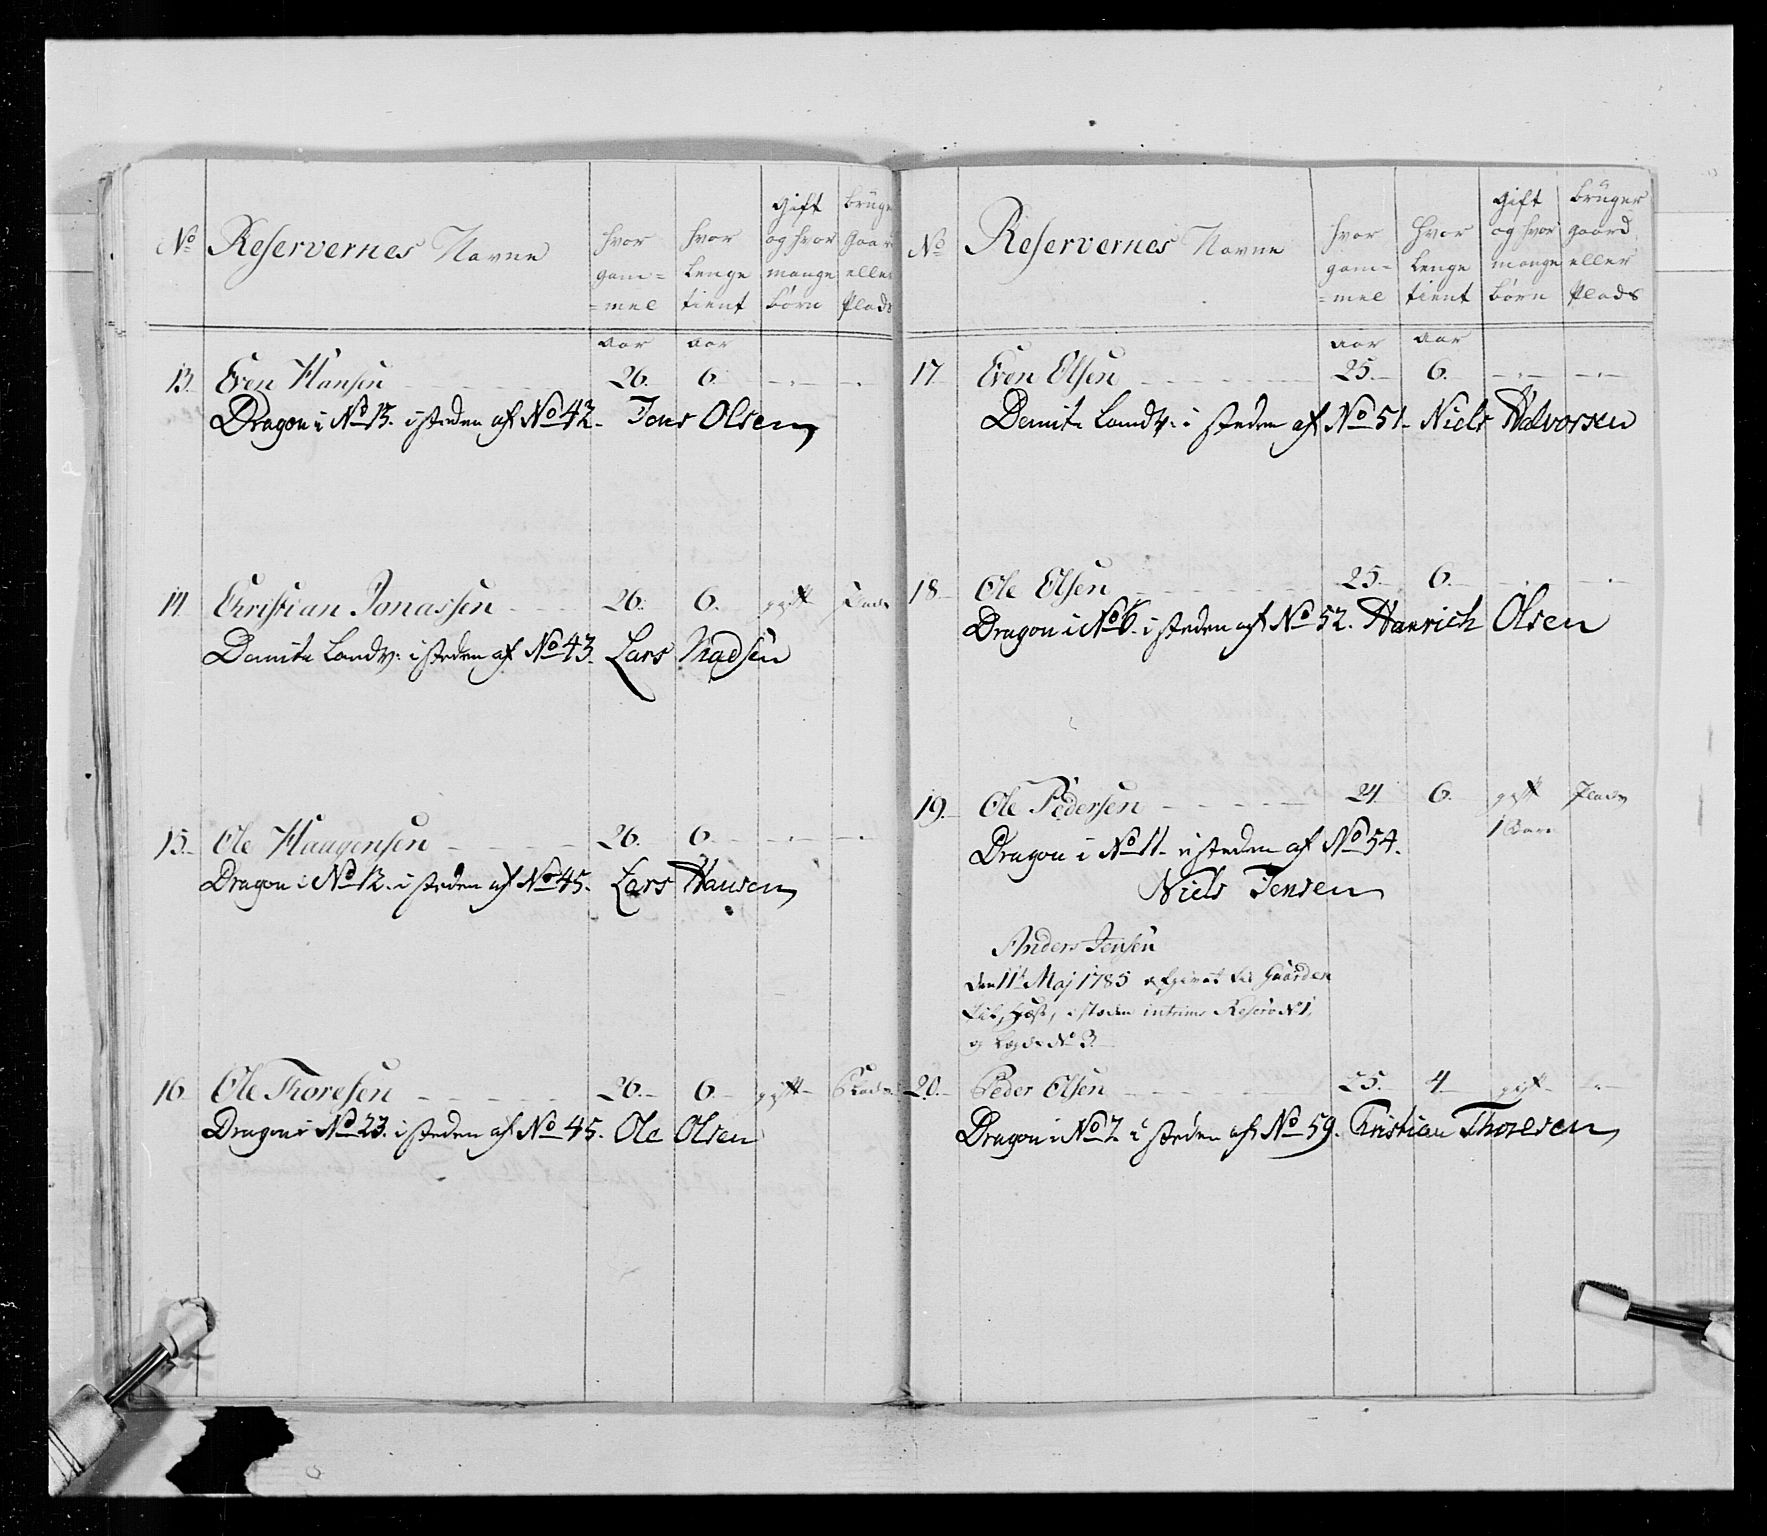 No Reservernes Navne hvor gam= =mel hvor Lenge tient Gift og hvor mange børn bruger Gaard eller Plads
Aar Aar
13. Even Hansen 26. 6.
Dragon i No 13. i steden af No 42. Jens Olsen
14. Christian Jonassen 26. 6. gift Plads
Domite Landv: i steden af No 43. Lars Madsen
15. Ole Haagensen 26. 6.
Dragon i No 12. i steden af No 45. Lars Hansen
16. Ole Thoresen 26. 6. gift Plads
Dragon i No 23. i steden af No 45. Ole Olsen
No Reservernes Navne hvor gam= =mel hvor Lenge tient Gift og hvor mange børn bruger gaard eller Plads
Aar Aar
17. Even Olsen 25. 6.
Domite Landv: i steden af No 51. Niels Halvorsen
18. Ole Olsen 25. 6.
Dragon i No 6. i steden af No 52. Hanrich Olsen
19. Ole Pedersen 24. 6. gift Plads
1 Barn
Dragon i No 11. i steden af No 54.
Niels Jensen
Anders Jensen
den 11t Maj 1785 afgivet til Gaarden
i steden intrims Reserv No 1,
og Lægd No 3.
20. Peder Olsen 25. 4 gift
Dragon i No 7. i steden af No 59. Christian Thoresen